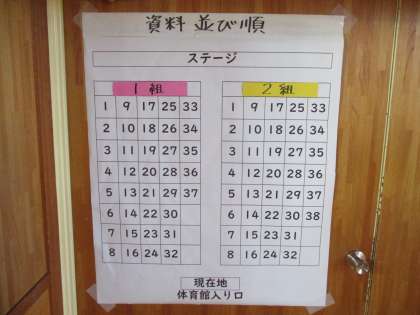 資料 並び順
ステージ
1組 2組
1 9 17 25 33 1 9 17 25 33
2 10 18 26 34 2 10 18 26 34
3 11 19 27 35 3 11 19 27 35
4 12 20 28 36 4 12 20 28 36
5 13 21 29 37 5 13 21 29 37
6 14 22 30 6 14 22 30 38
7 15 23 31 7 15 23 31
8 16 24 32 8 16 24 32
現在地
体育館入り口